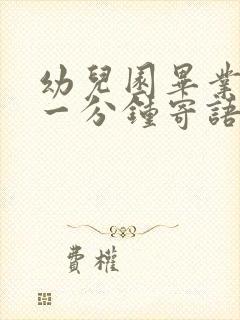 幼兒園畢業
一分鐘寄語
費權